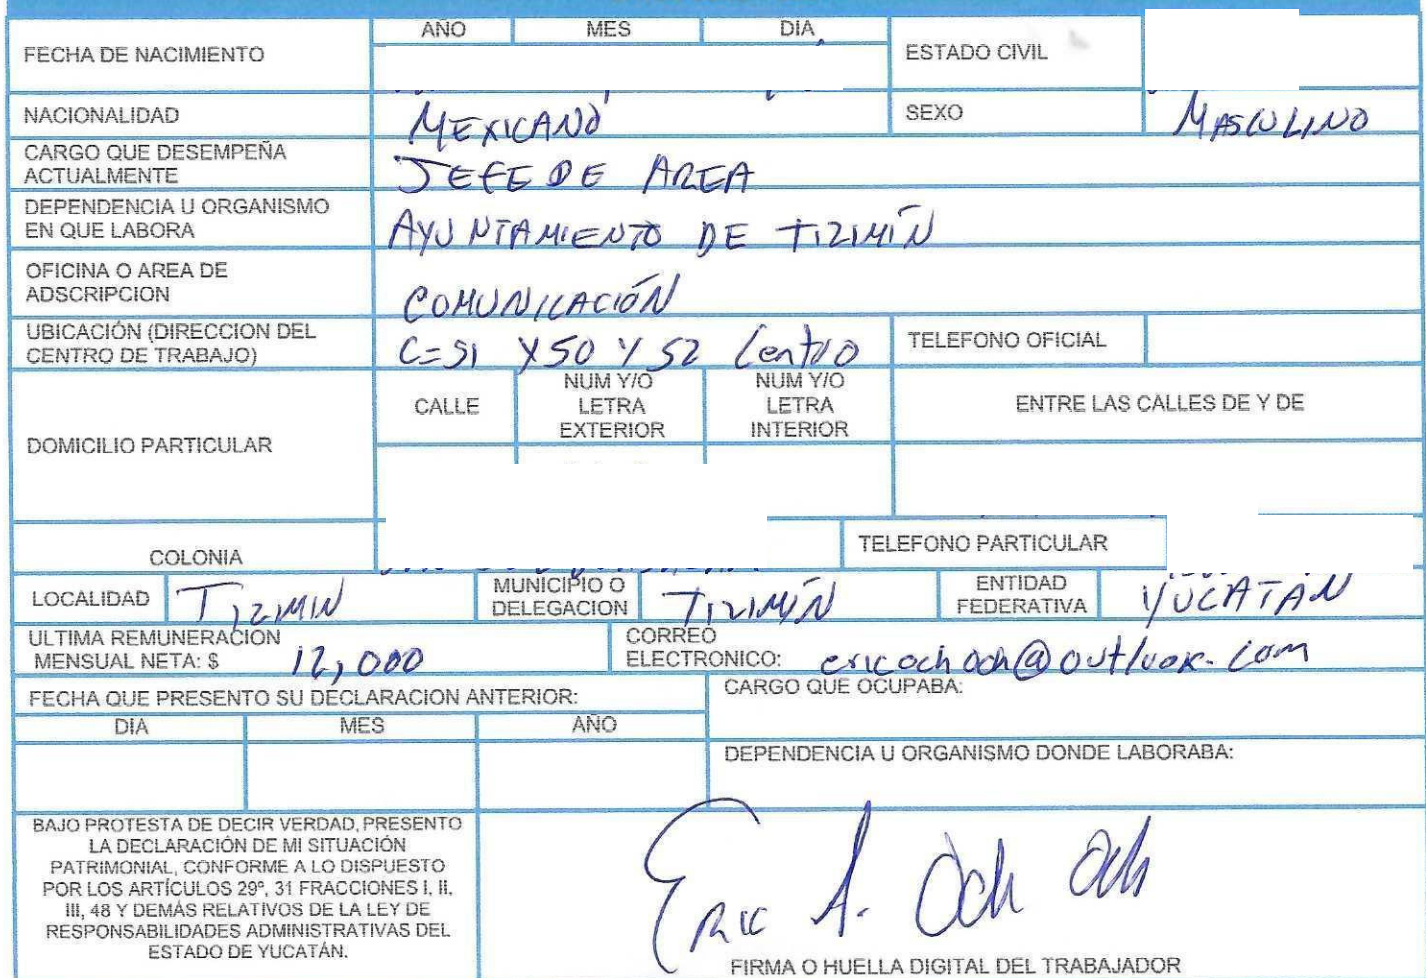 AÑO MES DIA
FECHA DE NACIMIENTO ESTADO CIVIL
NACIONALIDAD MEXICANO SEXO MASCULINO
CARGO QUE DESEMPEÑA
ACTUALMENTE JEFE DE AREA
DEPENDENCIA U ORGANISMO
EN QUE LABORA AYUNTAMIENTO DE TIZIMÍN
OFICINA O AREA DE
ADSCRIPCION COMUNICACIÓN
UBICACIÓN (DIRECCION DEL
CENTRO DE TRABAJO) C=51 X50 Y 52 Centro TELEFONO OFICIAL
DOMICILIO PARTICULAR
CALLE
NUM Y/O
LETRA
EXTERIOR
NUM Y/O
LETRA
INTERIOR
ENTRE LAS CALLES DE Y DE
COLONIA TELEFONO PARTICULAR
LOCALIDAD TIZIMIN
MUNICIPIO O
DELEGACION TIZIMÍN
ENTIDAD
FEDERATIVA YUCATAN
ULTIMA REMUNERACION
MENSUAL NETA: $ 12,000
CORREO
ELECTRONICO: ericochoch@outlook.com
FECHA QUE PRESENTO SU DECLARACION ANTERIOR:
CARGO QUE OCUPABA:
DIA MES AÑO
DEPENDENCIA U ORGANISMO DONDE LABORABA:
BAJO PROTESTA DE DECIR VERDAD, PRESENTO
LA DECLARACIÓN DE MI SITUACIÓN
PATRIMONIAL, CONFORME A LO DISPUESTO
POR LOS ARTÍCULOS 29º, 31 FRACCIONES I, II,
III, 48 Y DEMÁS RELATIVOS DE LA LEY DE
RESPONSABILIDADES ADMINISTRATIVAS DEL
ESTADO DE YUCATÁN.
Eric A. Och Och
FIRMA O HUELLA DIGITAL DEL TRABAJADOR